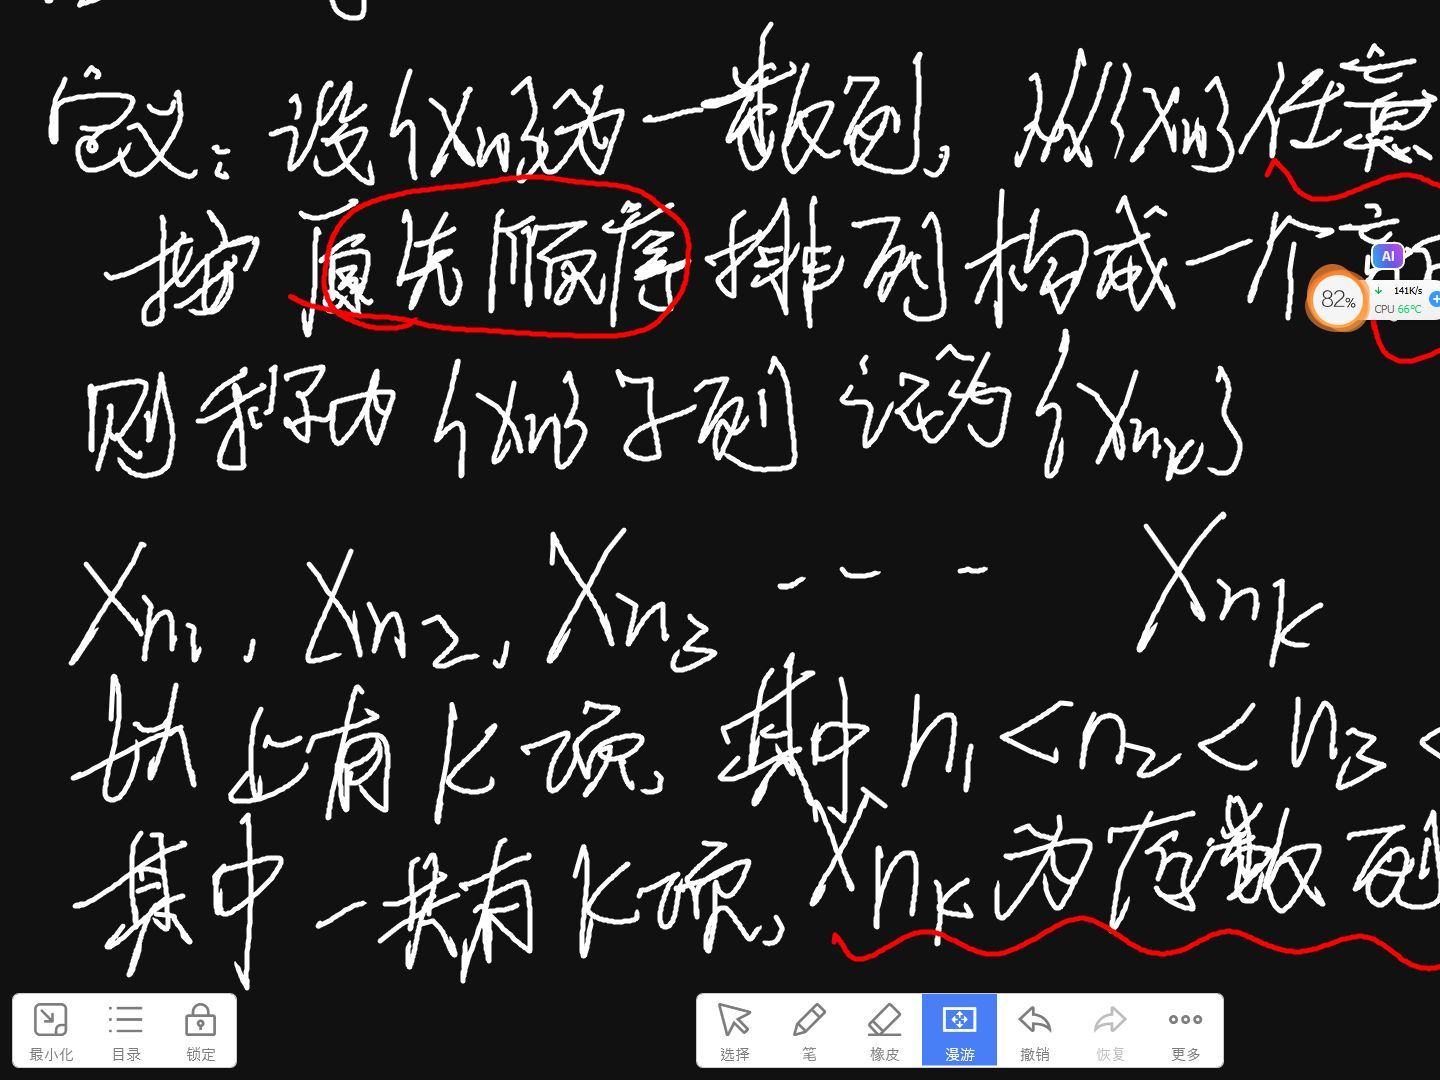 定义：设{Xn}为一数列，从{Xn}任意
按原先顺序排列构成一个
则称为{Xn}子列 记为{Xnk}
Xn1, Xn2, Xn3 ---- Xnk
以上有K项，其中n1<n2<n3<
其中一共有K项，Xnk为存数列
AI
82%
141K/s
CPU 66℃
最小化 目录 锁定 选择 笔 橡皮 漫游 撤销 恢复 更多